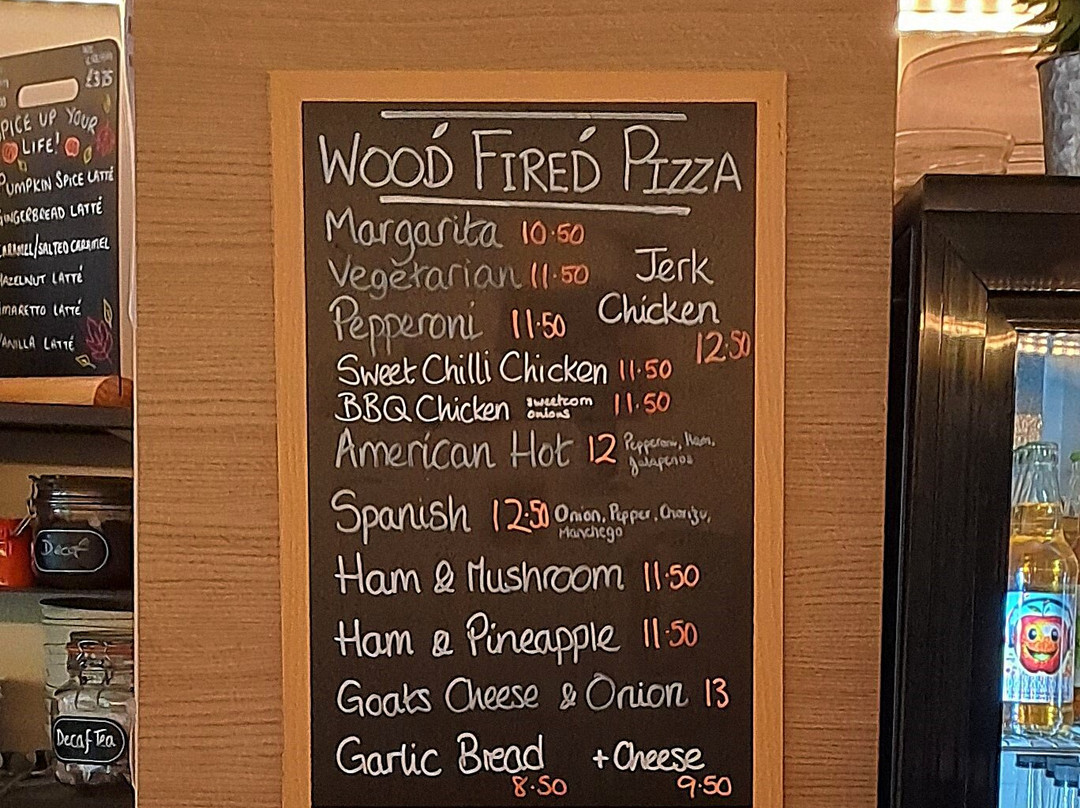 £3.75
SPICE UP YOUR
LIFE!
PUMPKIN SPICE LATTÉ
GINGERBREAD LATTÉ
CARAMEL/SALTED CARAMEL
HAZELNUT LATTÉ
AMARETTO LATTÉ
VANILLA LATTÉ
Decaf
Decaf Tea
WOOD FIRED PIZZA
Margarita 10.50
Vegetarian 11.50
Jerk
Chicken
12.50
Pepperoni 11.50
Sweet Chilli Chicken 11.50
BBQ Chicken sweetcorn
onions 11.50
American Hot 12 Pepperoni, Ham,
Jalapenos
Spanish 12.50 Onion, Pepper, Chorizo,
Manchego
Ham & Mushroom 11.50
Ham & Pineapple 11.50
Goats Cheese & Onion 13
Garlic Bread + Cheese
8.50 9.50